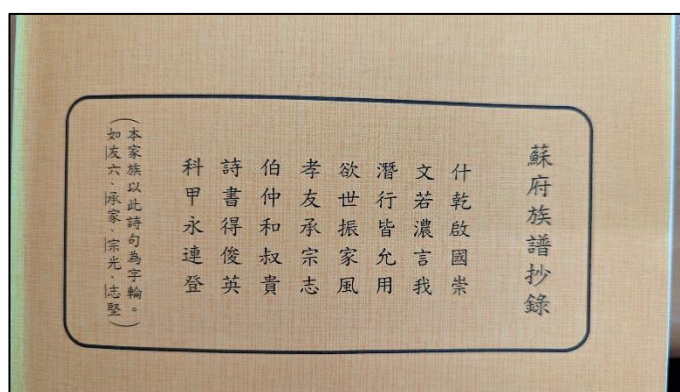 蘇府族譜抄錄
什乾啟國崇
文若濃言我
潛行皆允用
欲世振家風
孝友承宗志
伯仲和叔貴
詩書得俊英
科甲永連登
（本家族以此詩句為字輪。
如友六、承家、宗光、志堅）